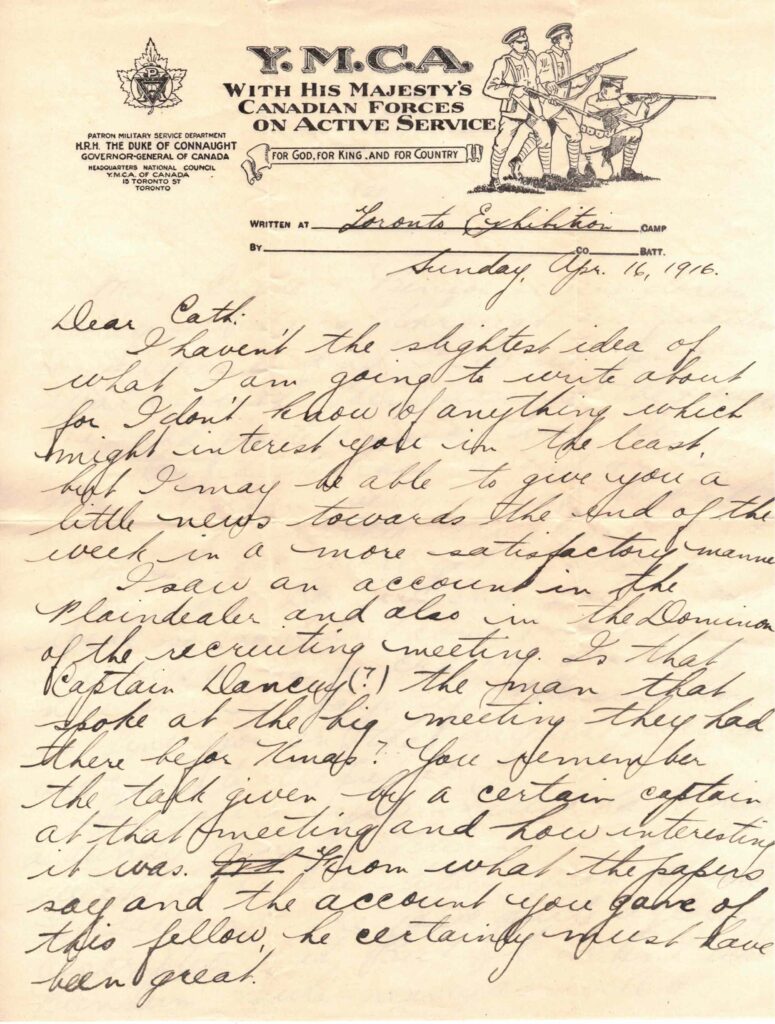 Y.M.C.A.
WITH HIS MAJESTY'S
CANADIAN FORCES
ON ACTIVE SERVICE
FOR GOD, FOR KING, AND FOR COUNTRY
PATRON MILITARY SERVICE DEPARTMENT
H.R.H. THE DUKE OF CONNAUGHT
GOVERNOR-GENERAL OF CANADA
HEADQUARTERS NATIONAL COUNCIL
Y.M.C.A. OF CANADA
15 TORONTO ST
TORONTO
WRITTEN AT Toronto Exhibition CAMP
BY CO. BATT.
Sunday, Apr. 16, 1916.
Dear Cath:
I haven't the slightest idea of
what I am going to write about
for I don't know of anything which
might interest you in the least,
but I may be able to give you a
little news towards the end of the
week in a more satisfactory manne
I saw an account in the
Plaindealer and also in the Dominion
of the recruiting meeting. Is that
Captain Dancey(?) the man that
spoke at the big meeting they had
there befor Xmas? You remember
the talk given by a certain captain
at that meeting and how interesting
it was. From what the papers
say and the account you gave of
this fellow, he certainly must have
been great.